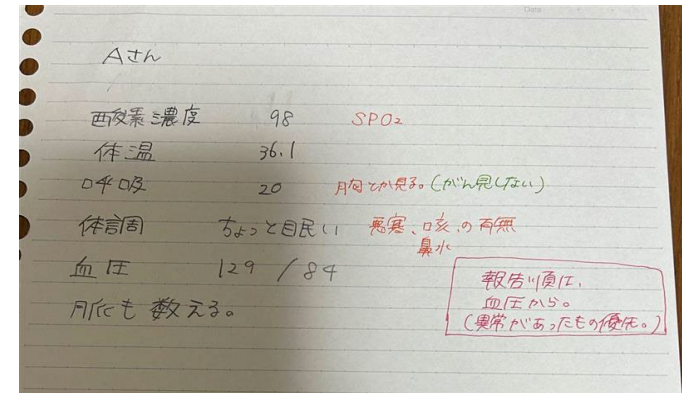 Aさん
酸素濃度 98 SPO2
体温 36.1
呼吸 20 胸とか見る。(がん見しない)
体調 ちょっと眠い 悪寒、咳、の有無
鼻水
血圧 129 / 84
脈も数える。
報告順は、
血圧から。
(異常があったもの優先。)